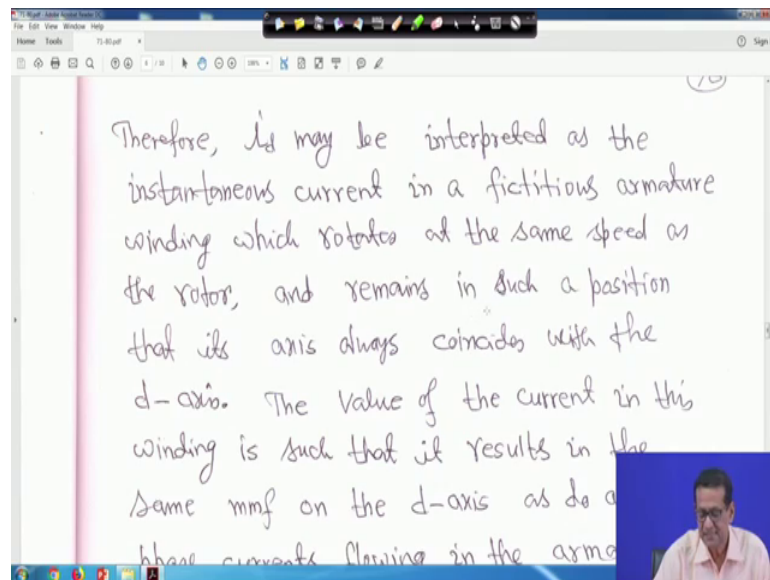 71-80.pdf - Adobe Acrobat Reader DC
File Edit View Window Help
Home Tools 71-80.pdf × Sign
Therefore, id may be interpreted as the
instantaneous current in a fictitious armature
winding which rotates at the same speed as
the rotor, and remains in such a position
that its axis always coincides with the
d-axis. The value of the current in this
winding is such that it results in the
same mmf on the d-axis as do
phase currents flowing in the